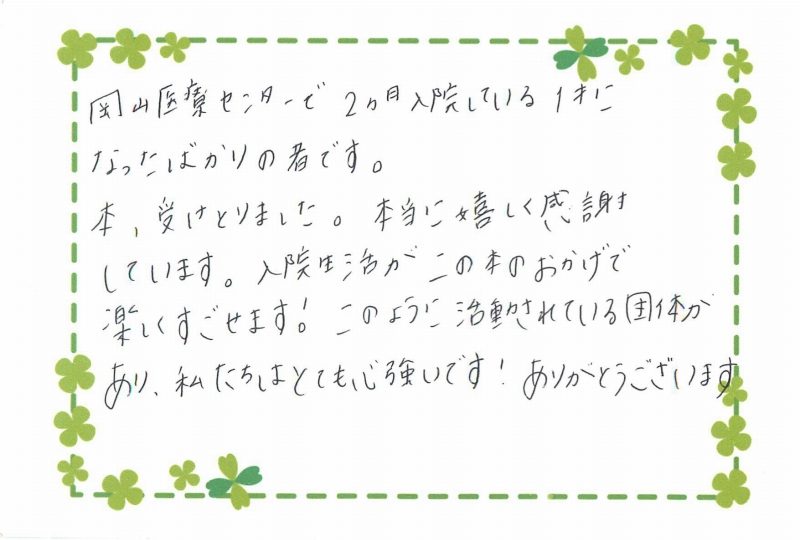 岡山医療センターで 2カ月入院している 1才に
なったばかりの者です。
本、受けとりました。本当に嬉しく感謝
しています。入院生活が この本のおかげで
楽しくすごせます! このように 活動されている団体が
あり、私たちはとても心強いです! ありがとうございます